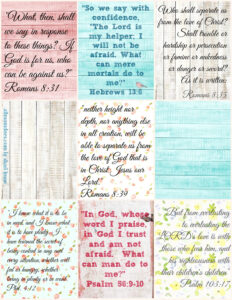 "What, then, shall
we say in response
to these things? If
God is for us, who
can be against us?
Romans 8:31
"So we say with
confidence,
"The Lord is
my helper, I
will not be
afraid. What can
mere
mortals do to
me?"
Hebrews 13:6
Who shall separate us
from the love of Christ?
Shall trouble or
hardship or persecution
or famine or nakedness
or danger or sword?
As it is written,
Romans 8:35
neither height nor
depth, nor anything else
in all creation, will be
able to separate us from
the love of God that is
in Christ Jesus our
Lord.
Romans 8:39
I know what it is to be
in need, and I know what
it is to have plenty. I
have learned the secret of
being content in any and
every situation, whether well
fed or hungry, whether
living in plenty or in want
"In God, whose
word I praise,
in God I trust
and am not
afraid. What
can man do to
me?"
Psalm 56:9-10
But from everlasting
to everlasting the
LORD's love is with
those who fear him, and
his righteousness with
their children's children
Psalm 103:17